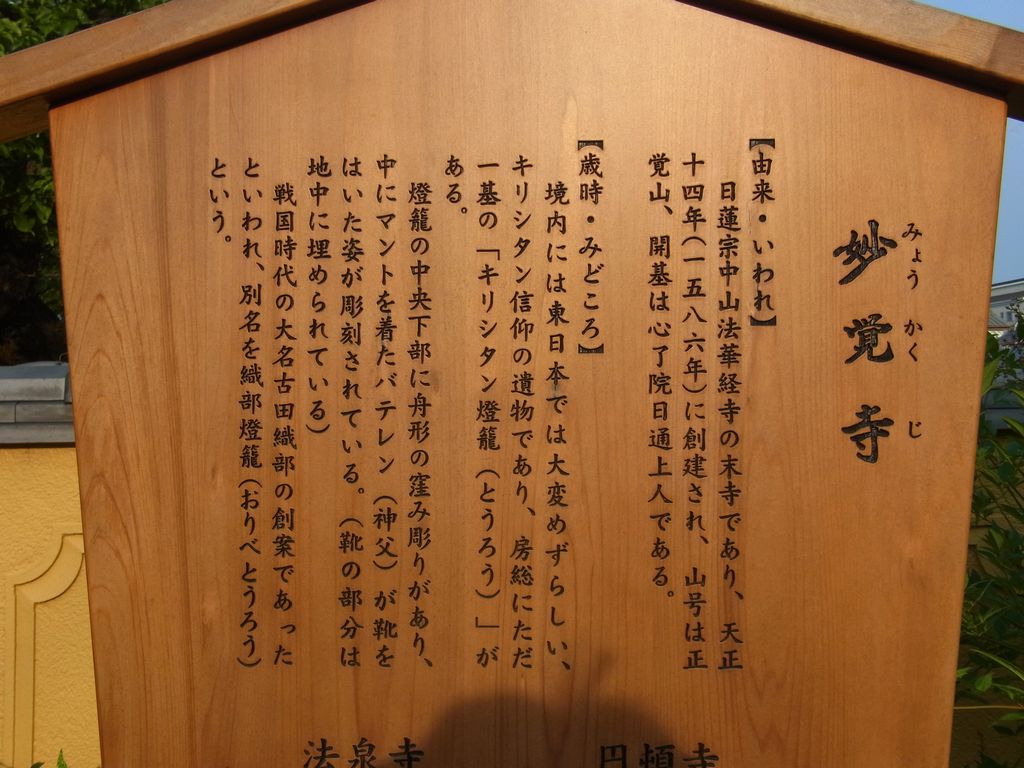 妙覚寺
みょうかくじ
【由来・いわれ】
日蓮宗中山法華経寺の末寺であり、天正
十四年(一五八六年)に創建され、山号は正
覚山、開基は心了院日通上人である。
【歳時・みどころ】
境内には東日本では大変めずらしい、
キリシタン信仰の遺物であり、房総にただ
一基の「キリシタン燈籠(とうろう)」が
ある。
燈籠の中央下部に舟形の窪み彫りがあり、
中にマントを着たバテレン(神父)が靴を
はいた姿が彫刻されている。(靴の部分は
地中に埋められている)
戦国時代の大名古田織部の創案であった
といわれ、別名を織部燈籠(おりべとうろう)
という。
法泉寺
円頓寺